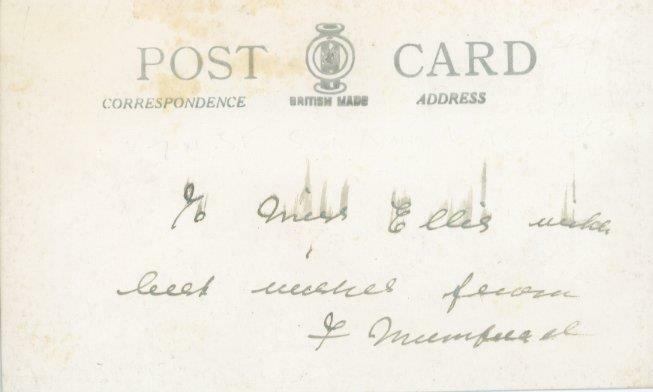 POST CARD
CORRESPONDENCE BRITISH MADE ADDRESS
To Miss Ellis with
best wishes from
F Mumford